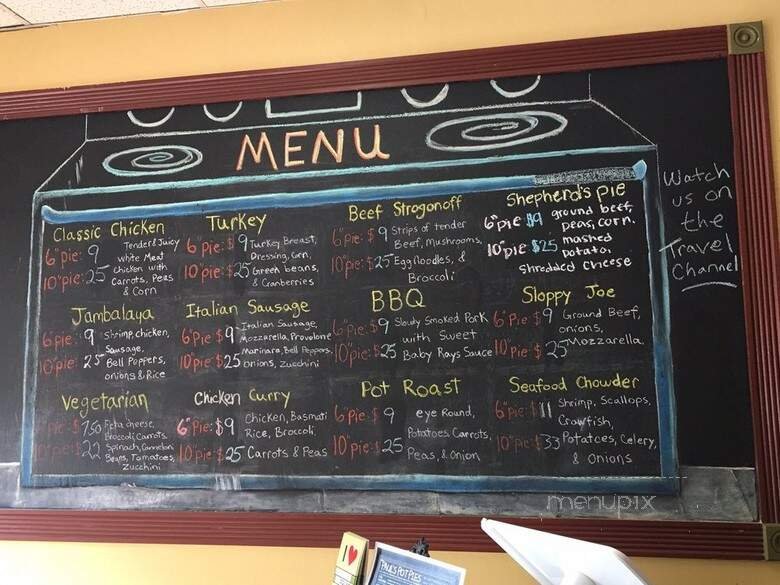 MENU
Watch
us on
the
Travel
Channel
Classic Chicken
6"pie: 9
10"pie: 25
Tender & Juicy
white Meat
chicken with
Carrots, Peas
& Corn
Turkey
6"pie: $9
10"pie: $25
Turkey Breast,
Dressing, Corn,
Green beans,
& Cranberries
Beef Strogonoff
6"pie: $9
10"pie: $25
Strips of tender
Beef, mushrooms,
Egg Noodles, &
Broccoli
Shepherd's pie
6"pie $9
10"pie $25
ground beef,
peas, corn,
mashed
potato
shredded cheese
Jambalaya
6"pie: 9
10"pie: 25
Shrimp, chicken,
Sausage,
Bell Peppers,
onions & Rice
Italian Sausage
6"pie $9
10"pie: $25
Italian Sausage,
Mozzarella, Provolone
Marinara, Bell Peppers,
onions, zucchini
BBQ
6"pie: $9
10"pie: $25
Slowly Smoked Pork
with Sweet
Baby Rays Sauce
Sloppy Joe
6"pie: $9
10"pie: $25
Ground Beef,
onions,
Mozzarella
Vegetarian
pie: $7.50
pie: $22
Feta cheese,
Broccoli, Carrots
Spinach,
Beans, Tomatoes,
zucchini
Chicken Curry
6"pie: $9
10"pie: $25
Chicken, Basmati
Rice, Broccoli
Carrots & Peas
Pot Roast
6"pie: $9
10"pie: $25
eye Round,
Potatoes, Carrots,
Peas, & onion
Seafood Chowder
6"pie: $11
10"pie: $33
Shrimp, Scallops,
Crawfish,
Potatoes, Celery,
& onions
menupix
I
PAUL'S POT PIES